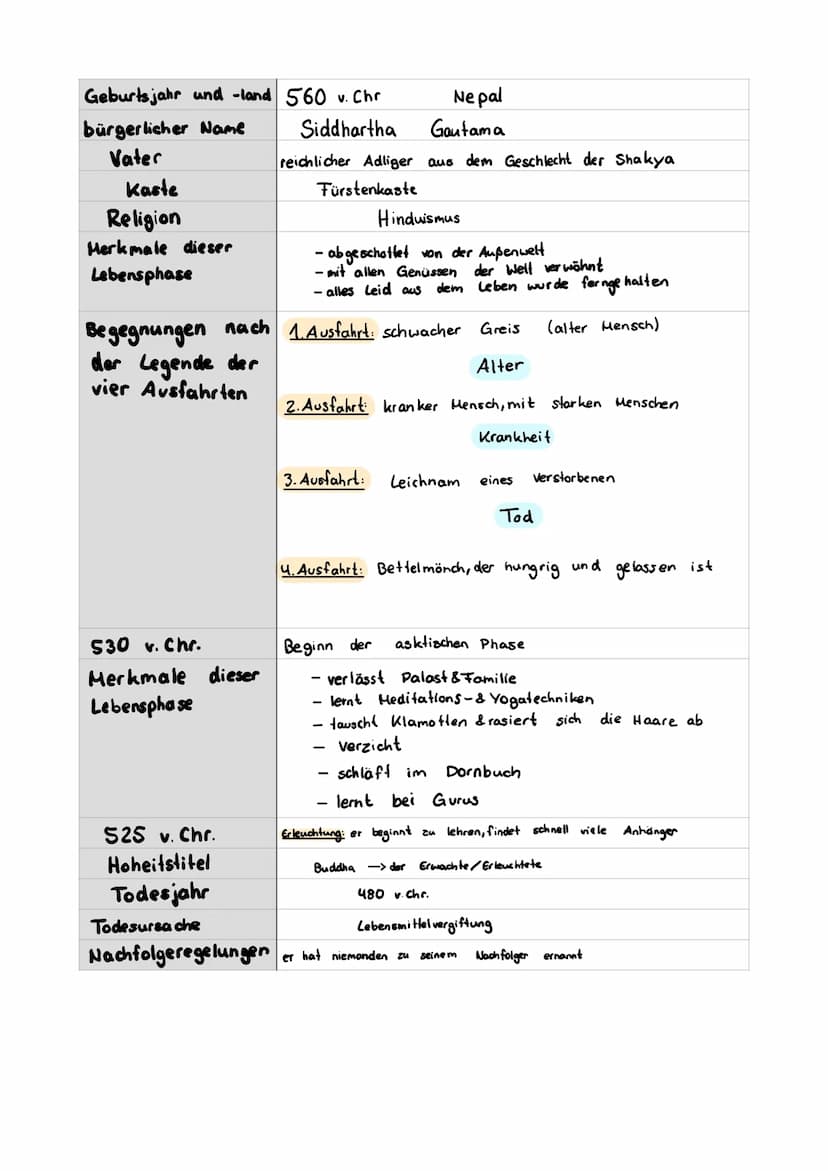 Geburtsjahr und -land 560 v. Chr Nepal
bürgerlicher Name Siddhartha Gautama
Vater reichlicher Adliger aus dem Geschlecht der Shakya
Kaste Fürstenkaste
Religion Hinduismus
Merkmale dieser
Lebensphase
- abgeschottet von der Außenwelt
- mit allen Genüssen der Welt verwöhnt
- alles Leid aus dem Leben wurde ferngehalten
Begegnungen nach
der Legende der
vier Ausfahrten
1. Ausfahrt: schwacher Greis (alter Mensch)
Alter
2. Ausfahrt: kranker Mensch, mit starken Menschen
Krankheit
3. Ausfahrt: Leichnam eines Verstorbenen
Tod
4. Ausfahrt: Bettelmönch, der hungrig und gelassen ist
530 v. Chr. Beginn der asktischen Phase
Merkmale dieser
Lebensphase
- verlässt Palast & Familie
- lernt Meditations- & Yogatechniken
- tauscht Klamotten & rasiert sich die Haare ab
- Verzicht
- schläft im Dornbuch
- lernt bei Gurus
525 v. Chr. Erleuchtung: er beginnt zu lehren, findet schnell viele Anhänger
Hoheitstitel Buddha → der Erwachte/Erleuchtete
Todesjahr 480 v. Chr.
Todesursache Lebensmittelvergiftung
Nachfolgeregelungen er hat niemanden zu seinem Nachfolger ernannt